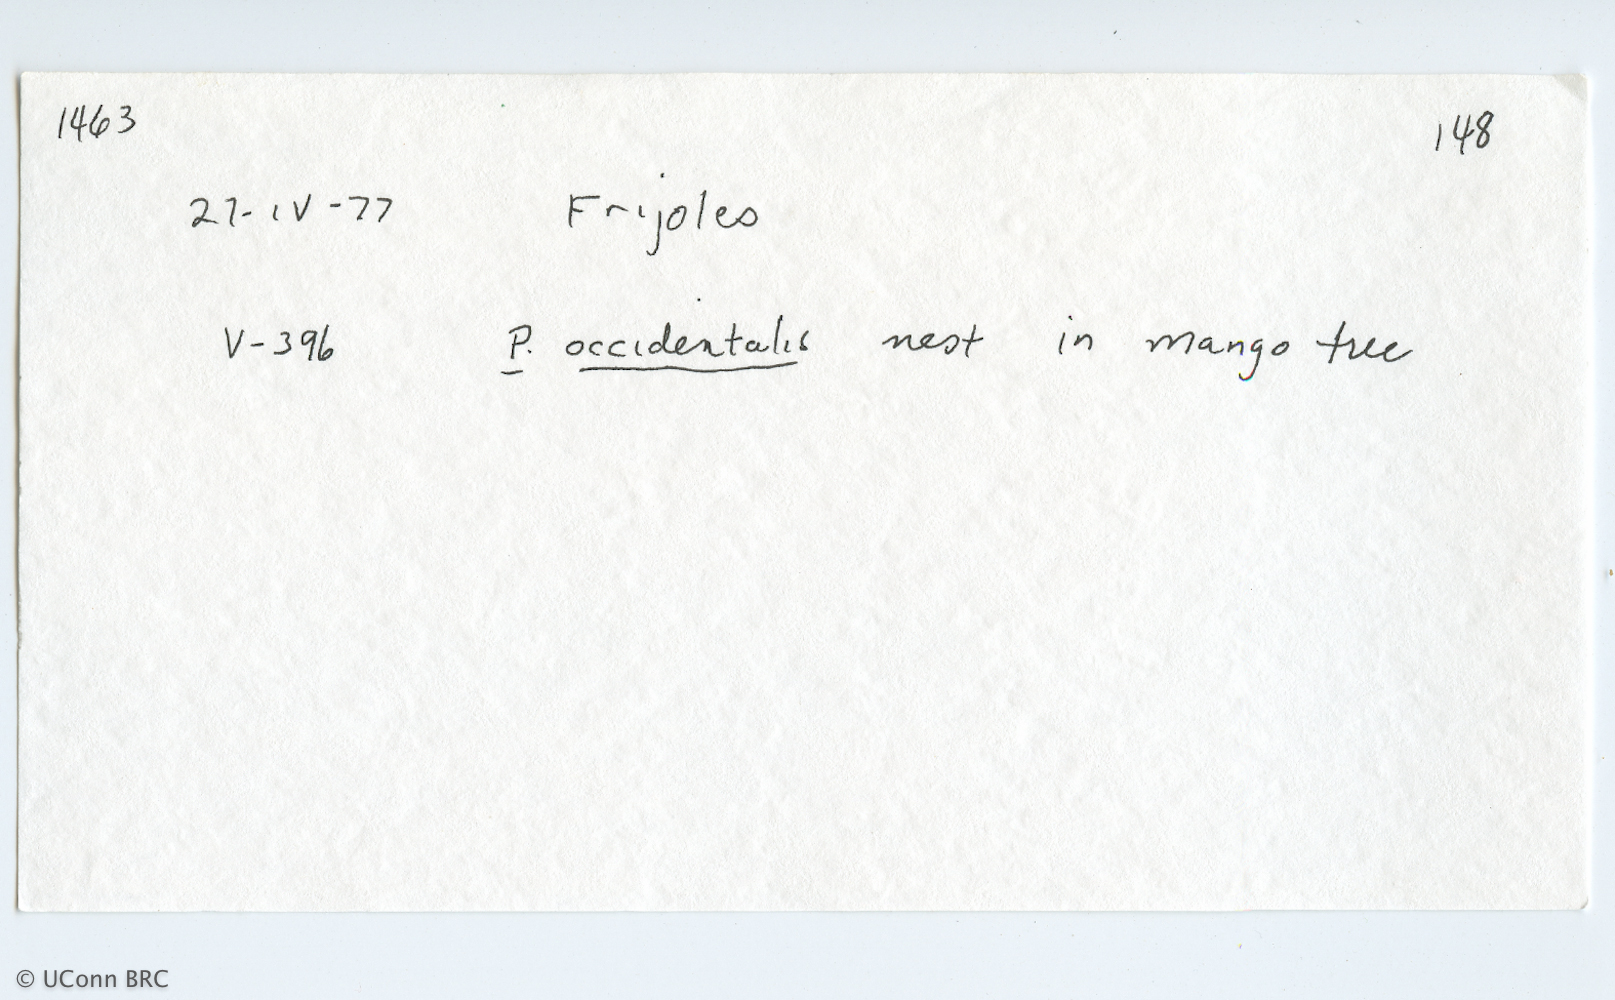 1463 148
27-IV-77 Frijoles
V-396 P. occidentalis nest in mango tree
© UConn BRC